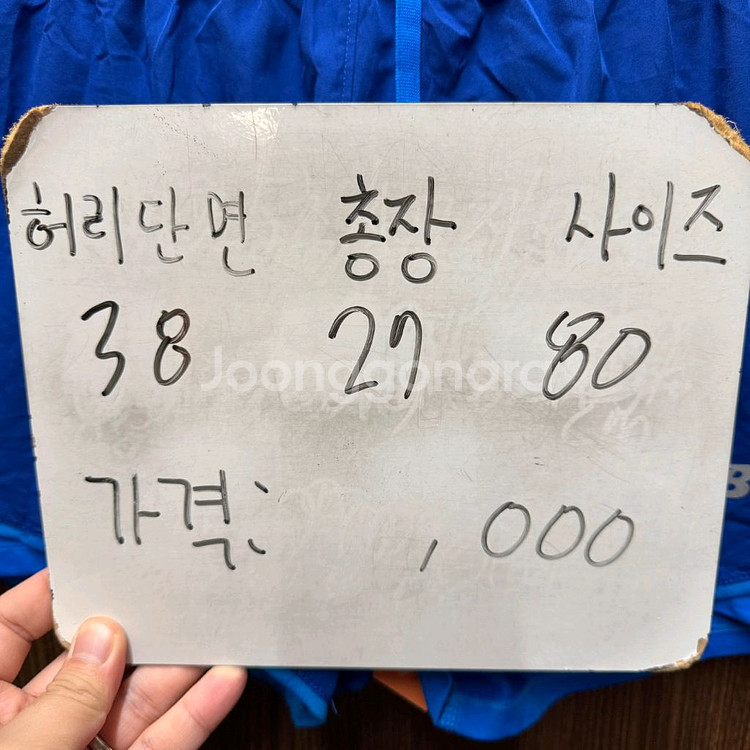 허리단면 총장 사이즈
38 27 80
Joonggonara
가격: ,000
B